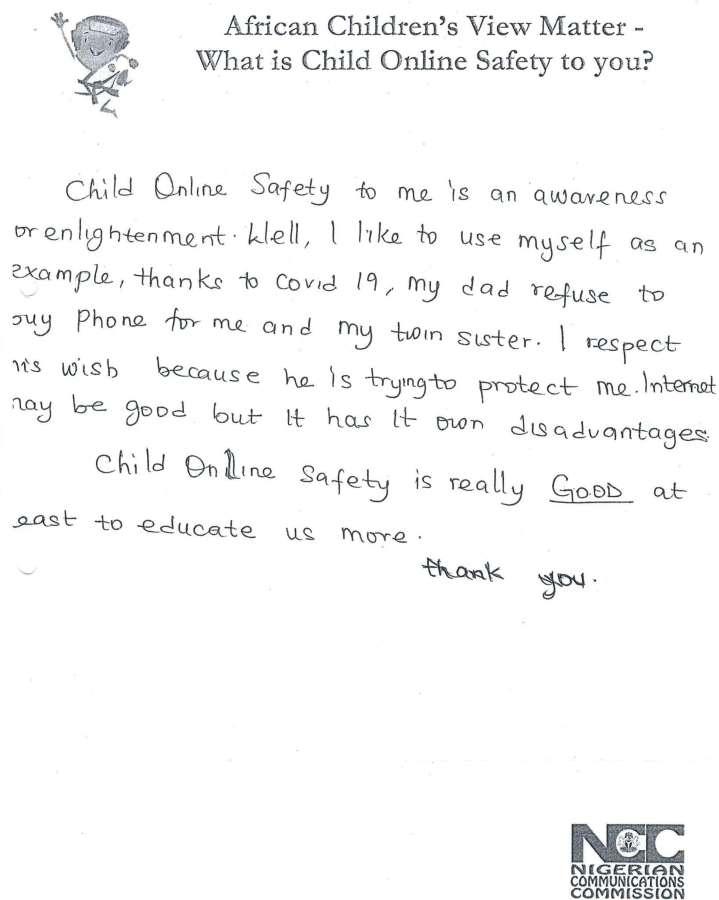 African Children's View Matter -
What is Child Online Safety to you?
Child Online Safety to me is an awareness
or enlightenment. Well, I like to use myself as an
example, thanks to Covid 19, my dad refuse to
buy Phone for me and my twin sister. I respect
his wish because he is trying to protect me. Internet
may be good but It has It own disadvantages
Child Online Safety is really GOOD at
least to educate us more.
thank you.
NCC
NIGERIAN
COMMUNICATIONS
COMMISSION